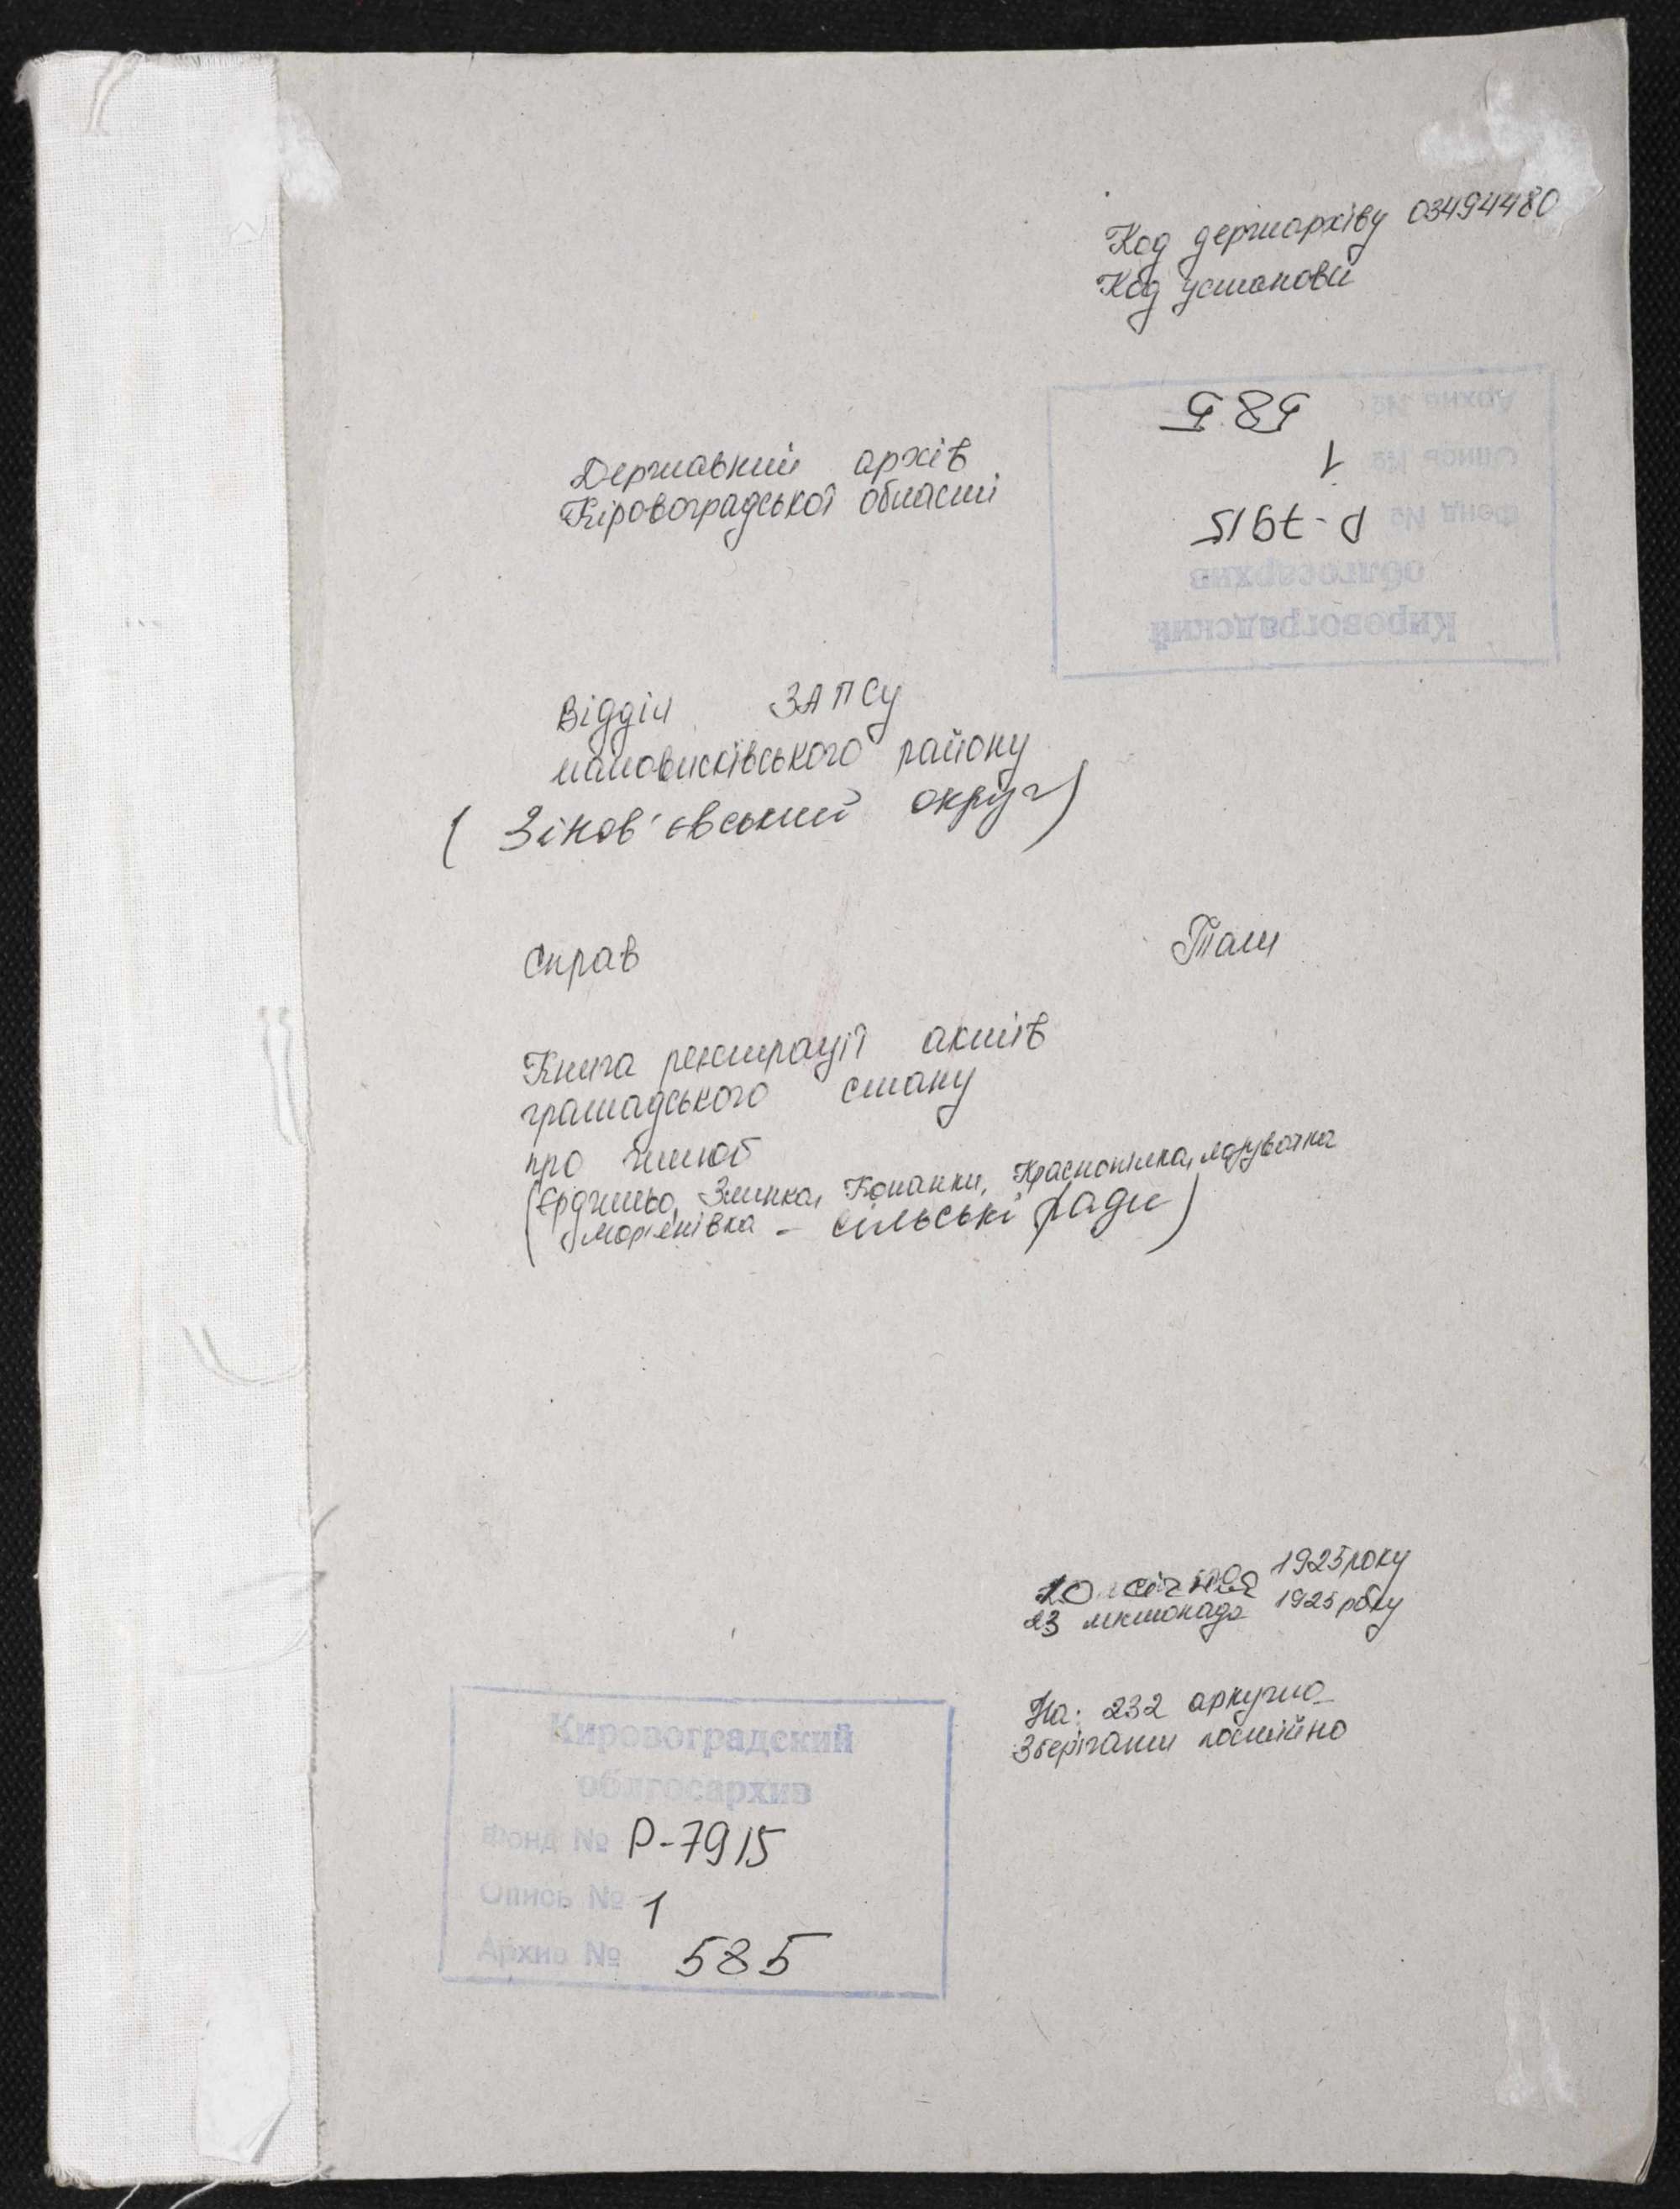 Код держархіву 03494480
Код установи
Архив № 585
Опись № 1
Фонд № Р-7915
облгосархив
Кировоградский
Державний архів
Кіровоградської області
Відділ ЗАГСу
маловисківського району
(Зінов'євський округ)
Справ
Том
Книга реєстрації актів
громадського стану
про шлюб
Злинка, Копанки,
Мар'янівка - сільські ради)
10 січня 1925 року
23 листопада 1925 року
На: 232 аркушах
Зберігати постійно
Кировоградский
облгосархив
Фонд № Р-7915
Опись № 1
Архив № 585